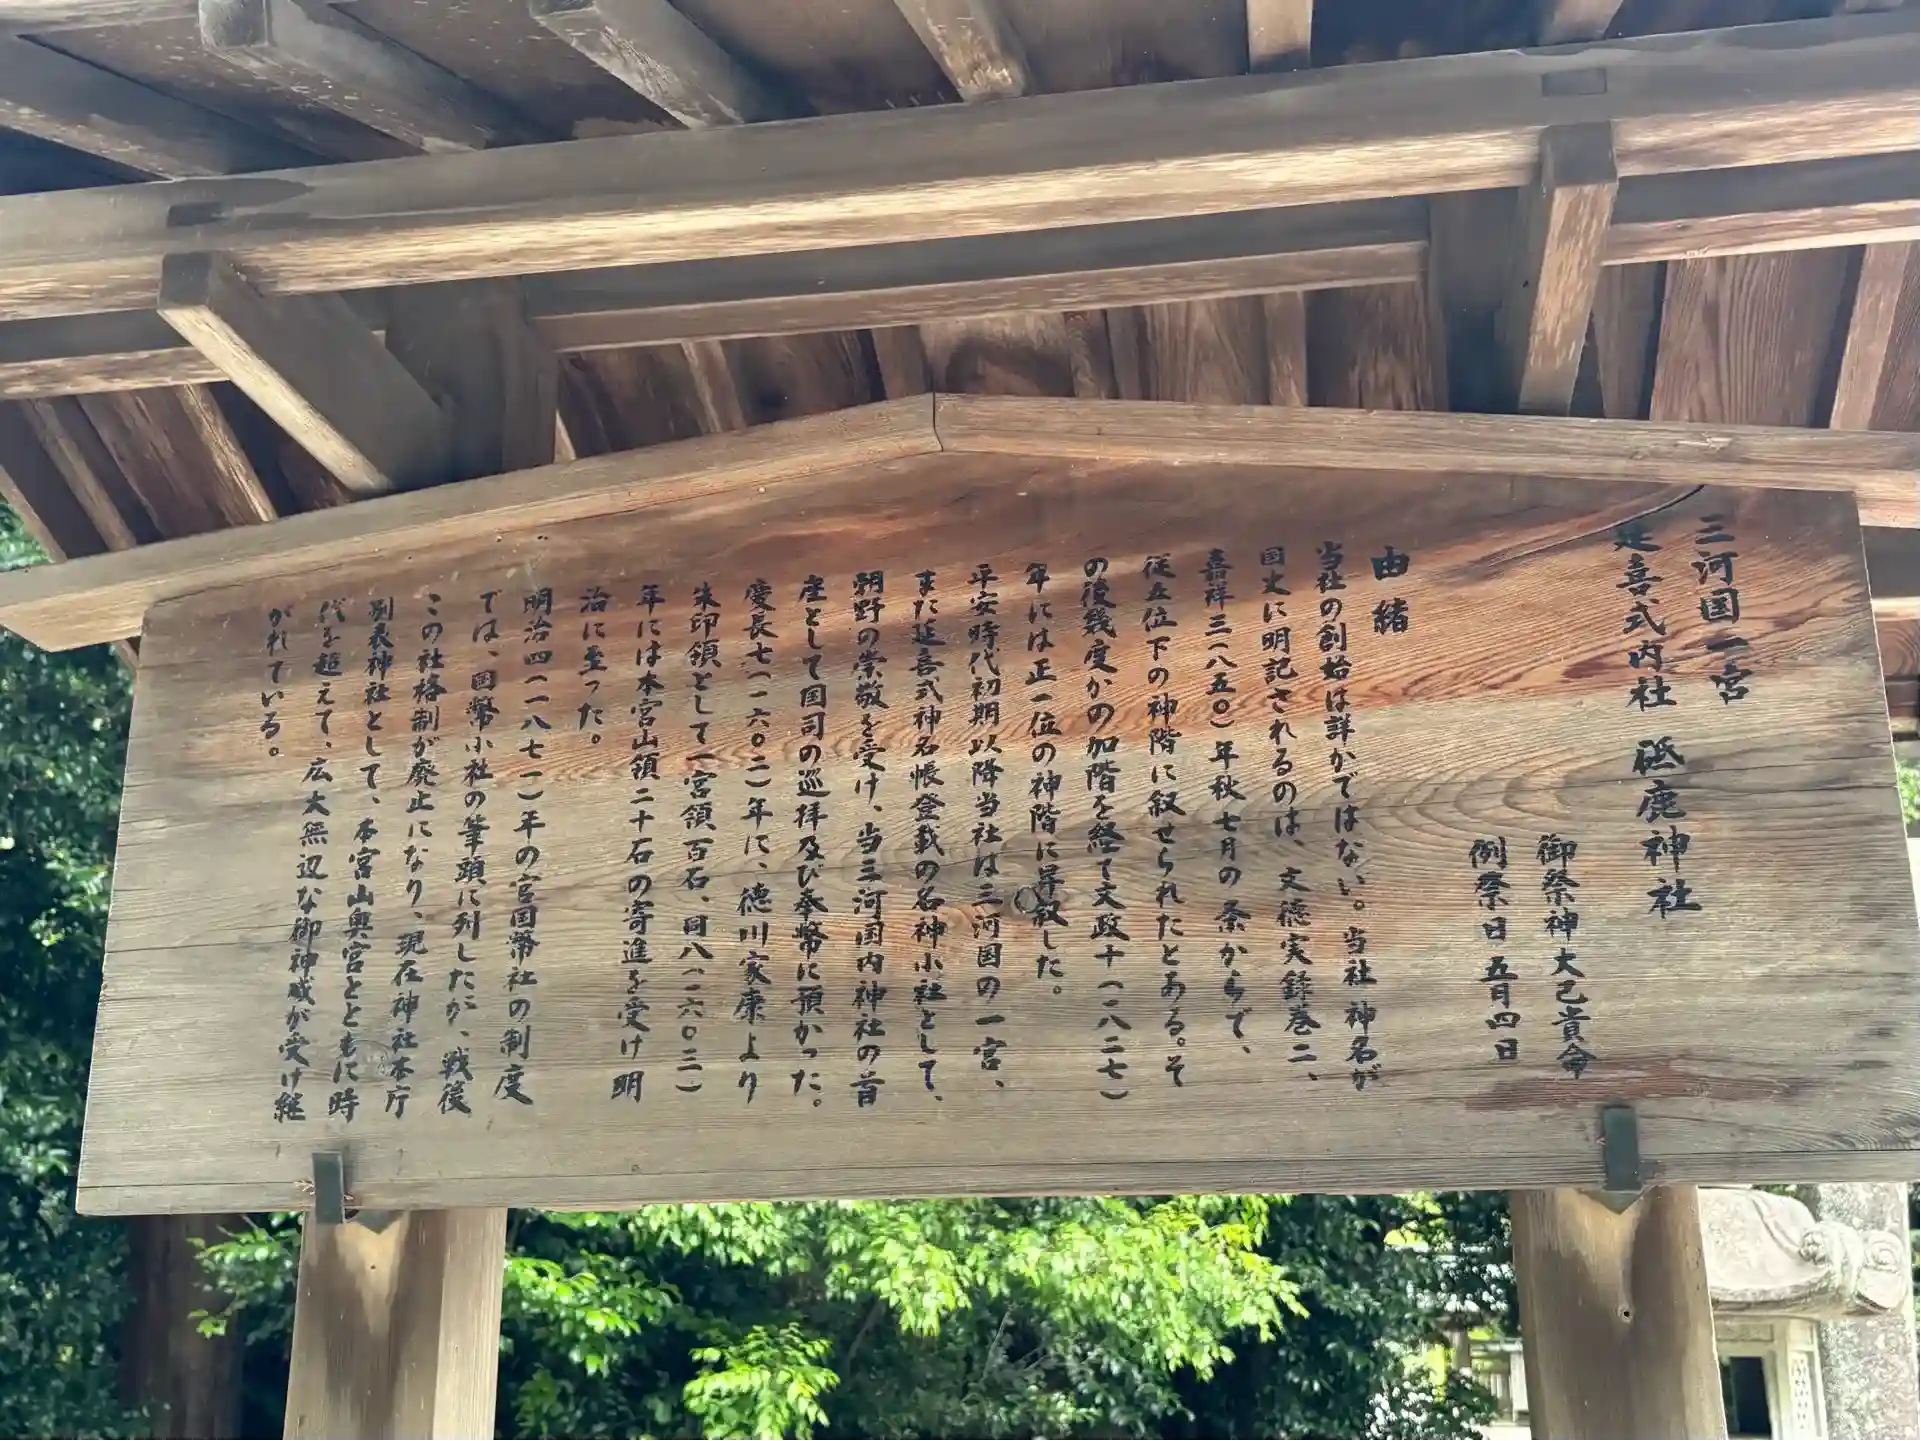 三河国一宮
延喜式内社 砥鹿神社
御祭神大己貴命
例祭日 五月四日
由緒
当社の創始は詳かではない。当社神名が
国史に明記されるのは、文徳実録巻二、
嘉祥三(八五〇)年秋七月の条からで、
従五位下の神階に叙せられたとある。そ
の後幾度かの加階を経て文政十(一八二七)
年には正一位の神階に昇叙した。
平安時代初期以降当社は三河国の一宮、
また延喜式神名帳登載の名神小社として、
朝野の崇敬を受け、当三河国内神社の首
座として国司の巡拝及び奉幣に預かった。
慶長七(一六〇二)年に、徳川家康より
朱印領として一宮領百石、同八(一六〇二)
年には本宮山領二十石の寄進を受け明
治に至った。
明治四(一八七一)年の官国幣社の制度
では、国幣小社の筆頭に列したが、戦後
この社格制が廃止になり、現在神社本庁
別表神社として、本宮山奥宮とともに時
代を超えて、広大無辺な御神威が受け継
がれている。